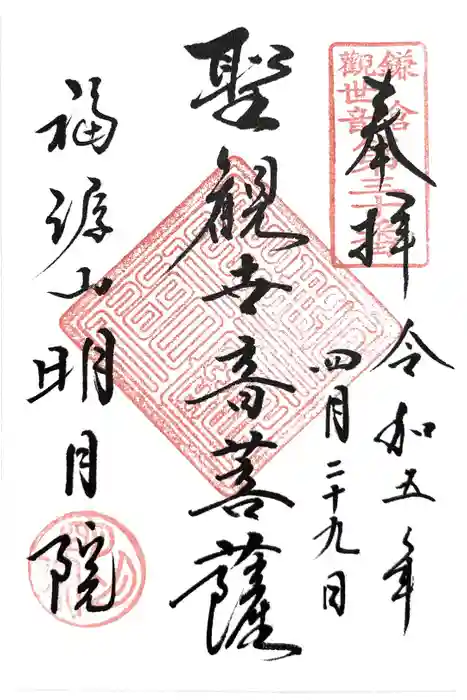 奉拝
令和五年
四月二十九日
聖観世音菩薩
福源山明月院
鎌倉第三十番
觀世音